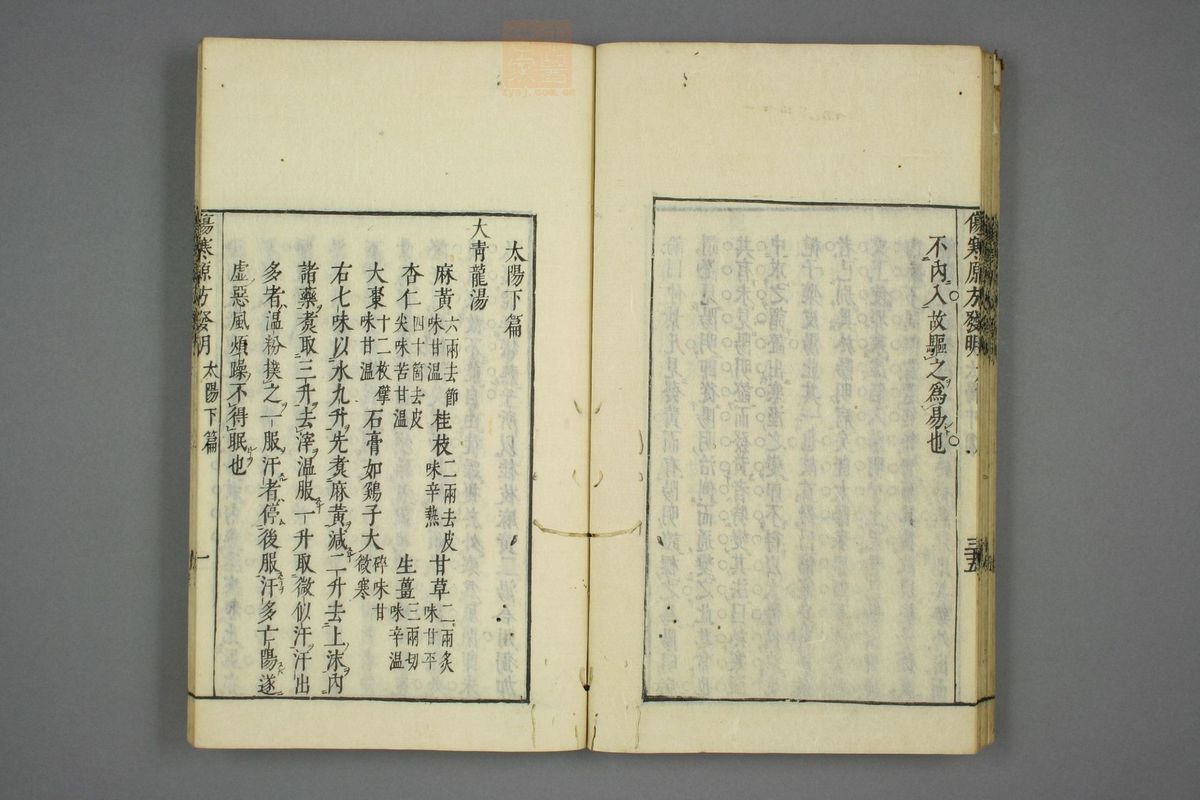 傷寒原方發明
三十五
不內入故驅之為易也
太陽下篇
大青龍湯
麻黃六兩去節味甘溫 桂枝二兩去皮味辛熱 甘草二兩炙味甘平
杏仁四十箇去皮尖味苦甘溫 生薑三兩切味辛溫
大棗十二枚擘味甘溫 石膏如鷄子大碎味甘微寒
右七味以水九升先煑麻黃減二升去上沫內
諸藥煑取三升去滓溫服一升取微似汗汗出
多者溫粉撲之一服汗者停後服汗多亡陽遂
虛惡風煩躁不得眠也
傷寒原方發明 太陽下篇 一
zysj.com.cn